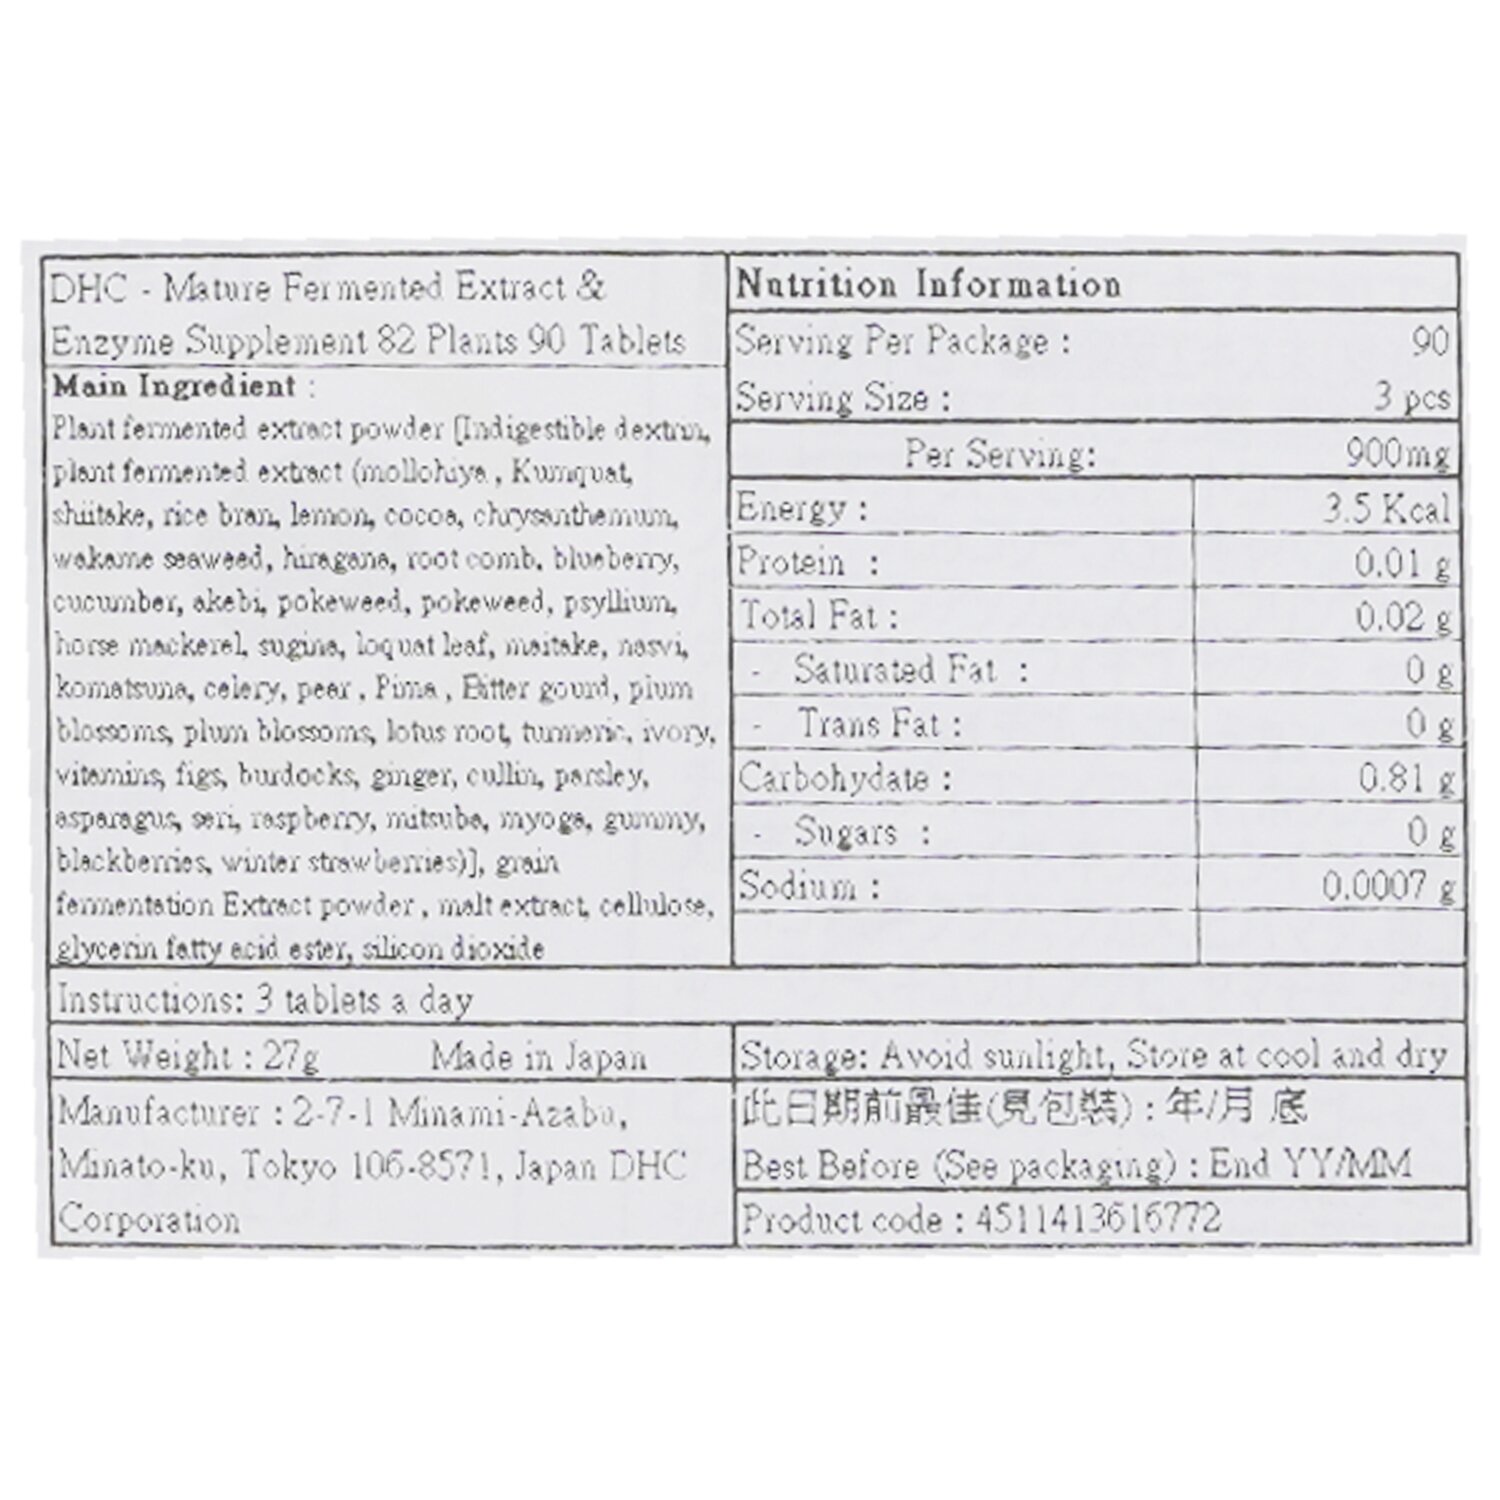 DHC - Mature Fermented Extract &
Enzyme Supplement 82 Plants 90 Tablets
Main Ingredient :
Plant fermented extract powder [Indigestible dextrin,
plant fermented extract (mollohiya , Kumquat,
shiitake, rice bran, lemon, cocoa, chrysanthemum,
wakame seaweed, hiragana, root comb, blueberry,
cucumber, akebi, pokeweed, pokeweed, psyllium,
horse mackerel, sugina, loquat leaf, maitake, nasvi,
komatsuna, celery, pear , Pima , Bitter gourd, plum
blossoms, plum blossoms, lotus root, turmeric, ivory,
vitamins, figs, burdocks, ginger, cullin, parsley,
asparagus, seri, raspberry, mitsuba, myoga, gummy,
blackberries, winter strawberries)], grain
fermentation Extract powder , malt extract, cellulose,
glycerin fatty acid ester, silicon dioxide
Nutrition Information
Serving Per Package : 90
Serving Size : 3 pcs
Per Serving: 900mg
Energy : 3.5 Kcal
Protein : 0.01 g
Total Fat : 0.02 g
- Saturated Fat : 0 g
- Trans Fat : 0 g
Carbohydate : 0.81 g
- Sugars : 0 g
Sodium : 0.0007 g
Instructions: 3 tablets a day
Net Weight : 27g Made in Japan
Storage: Avoid sunlight, Store at cool and dry
Manufacturer : 2-7-1 Minami-Azabu,
Minato-ku, Tokyo 106-8571, Japan DHC
Corporation
此日期前最佳(見包裝) : 年/月 底
Best Before (See packaging) : End YY/MM
Product code : 4511413616772